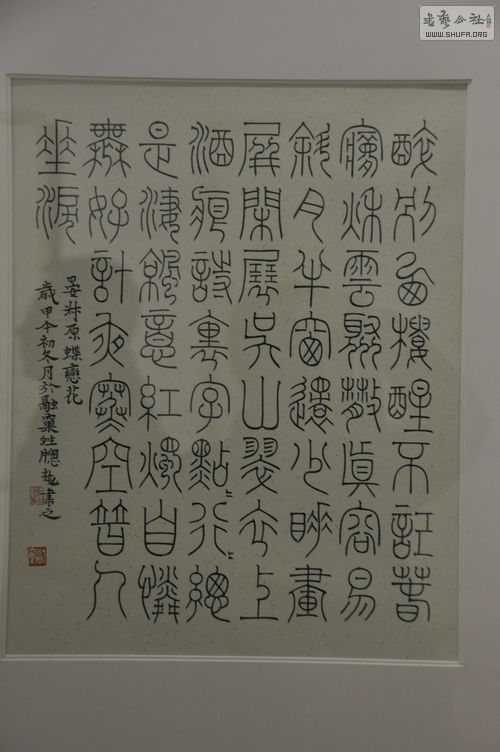 醉別西樓醒不記春
夢秋雲聚散真容易
斜月半窗還少睡畫
屏閑展吳山翠衣上
酒痕詩裏字點〻行〻總
是淒涼意紅燭自憐
無好計夜寒空替人
垂淚
晏叔原蝶戀花
歲甲午初冬月於融窠 書之
書藝公社
WWW.SHUFA.ORG